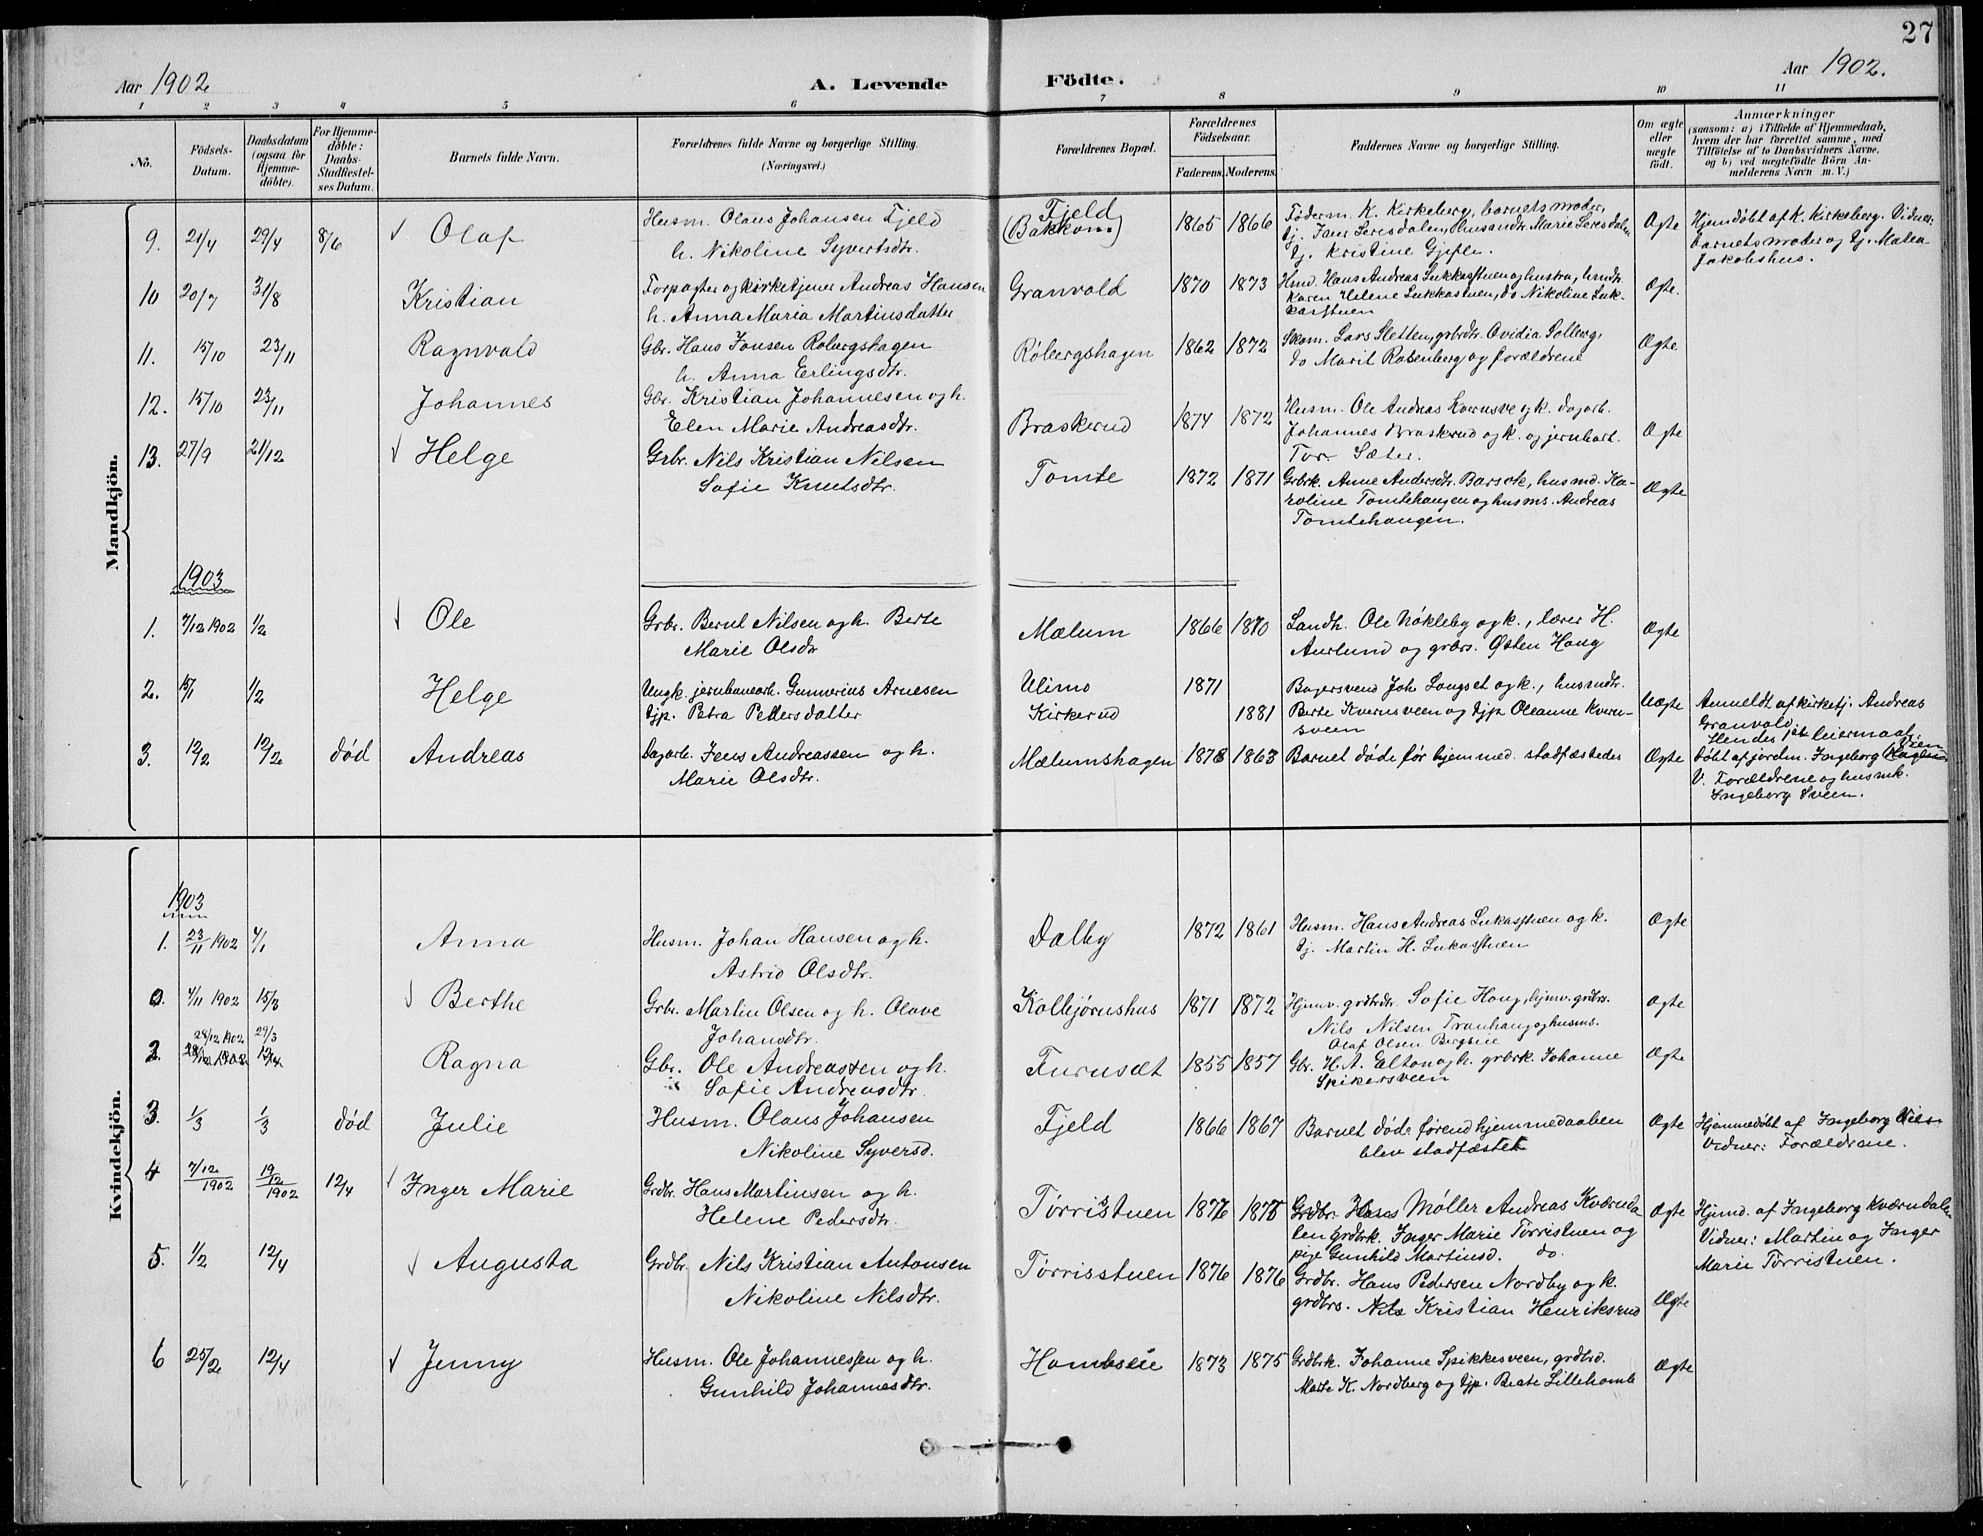 27
Aar 1902
A. Levende Födte.
Aar 1902.
1 2 3 4 5 6 7 8 9 10 11
No.
Födsels-Datum.
Daabsdatum (ogsaa for Hjemmedöbte).
For Hjemmedöbte: Daabs-Stadfæstelses Datum.
Barnets fulde Navn.
Forældrenes fulde Navne og borgerlige Stilling.
(Næringsvei.)
Forældrenes Bopæl.
Forældrenes Födselsaar.
Faderens. Moderens.
Faddernes Navne og borgerlige Stilling.
Om ægte eller uægte födt.
Anmærkninger
(saasom: a) i Tilfælde af Hjemmedaab,
hvem der har forrettet samme, med
Tilföielse af to Daabsvidners Navne,
og b) ved uægtefödte Börn Anmelderens Navn m. V.)
Mandkjön.
9. 21/4 29/4 8/6 Olaf
Husm. Olaus Johansen Fjeld
h. Nikoline Syvertsdtr.
Fjeld
(Bakkom)
1865 1866
Føderm. K. Kirkeberg, barnets moder,
Kristine
Ægte
Hjemdøbt af K. Kirkeberg. Vidner:
barnets moder og tj. Malea
Jakobshus.
10 20/7 31/8 Kristian
Forpagter og kirketjener Andreas Hansen
h. Anna Maria Martinsdatter
Granvold 1870 1873
Hmd. Hans Andreas Lukkasstuen og hustru,
Karen Helene Lukkastuen, do Nikoline Luk-
kasstuen
Ægte.
11. 15/10 23/11 Ragnvald
Gbr. Hans Jonsen Robergshagen
h. Anna Erlingsdtr.
Robergshagen 1862 1872
Skom. Lars Sletten, grbrdtr. Ovidia Solberg,
do Marit Rosenberg og forældrene
Ægte
12. 15/10 23/11 Johannes
Gbr. Kristian Johannesen og h.
Elen Marie Andreasdtr.
Braskerud 1874 1872
Husm. Ole Andreas Kvernsve og k. dagarb.
Johannes Braskerud og k. og jernbarb.
Tor Sæter.
Ægte
13. 27/9 21/12 Helge
Grbr. Nils Kristian Nilsen
Sofie Knutsdtr.
Tomte 1872 1871
Grbrk. Anne Andersdtr. Barsok, husmd. Ka-
roline Tomtehaugen og husms. Andreas
Tomtehaugen.
Ægte
1903
1. 7/12 1902 1/2 Ole
Grbr. Bernt Nilsen og h. Berte
Marie Olsdtr
Mælum 1866 1870
Landh. Ole Nøkleby og k., lærer H.
Aurlund og grbrs. Østen Haug
Ægte
2. 15/1 1/2 Helge
Ungk. jernbanearb. Gunnerius Arnesen
tjp. Petra Pettersdatter
Ulimo 1871
Kirkerud 1881
Bagersvend Joh. Longset og k., husmdtr.
Berte Kvernsveen og tjp Oleanne Kvern-
sveen
Uægte
Anmeldt af kirketj. Andreas
Granvold.
Hendes 1ste leiermaal.
3. 12/2 12/2 død Andreas
Dagarb. Jens Andreassen og h.
Marie Olsdtr.
Mælumshagen 1878 1863
Barnet døde før hjemmed. stadfæstedes
Ægte
Døbt af jordm. Ingeborg Vien
V. Forældrene og husmk.
Ingeborg Sveen.
Kvindekjön.
1903
1. 23/11 1902 4/1 Anna
Husm. Johan Hansen og h.
Astrid Olsdtr.
Dalby 1872 1861
Husm. Hans Andreas Lukasstuen og k.
tj. Martin H. Lukasstuen
Ægte
0. 4/11 1902 15/3 Berthe
Grbr. Martin Olsen og h. Olave
Johansdtr.
Kolbjørnshus 1871 1872
Hjmv. grdbrdtr. Sofie Haug, hjmv. grdbrs.
Nils Nilsen Tranhaug og husms.
Olaf Olsen Bergseie
Ægte
28/12 1902 29/3
2. Ragna
Gbr. Ole Andreassen og h.
Sofie Andreasdtr.
Furusæt 1855 1857
Gbr. H. A. Elton og h. grbrk. Johanne
Spikersveen
Ægte
3. 1/3 1/3 død Julie
Husm. Olaus Johansen
Nikoline Syversd.
Fjeld 1866 1867
Barnet døde førend hjemmedaaben
blev stadfæstet
Ægte
Hjemmedøbt af Ingeborg Vien
Vidner: Forældrene.
4 7/12 1902 19/12 1902 12/4 Inger Marie
Grdbr. Hans Martinsen og h.
Helene Pedersdtr.
Tørristuen 1876 1875
Grdbr. Hans Møller Andreas Kværnda-
len grdbrk. Inger Marie Tørristuen og
pige Gunhild Martinsd. do.
Ægte
Hjmd. af Ingeborg Kværndalen
Vidner: Martin og Inger
Marie Tørristuen.
5. 1/2 12/4 Augusta
Grdbr. Nils Kristian Antonsen
Nikoline Nilsdtr.
Tørrisstuen 1876 1876
Grdbr. Hans Pedersen Nordby og k.
grdbrs. Nils Kristian Henriksrud
Ægte
6 25/2 12/4 Jenny
Husm. Ole Johannessen og h.
Gunhild Johannesdtr.
Hombseie 1873 1875
Grdbrk. Johanne Spikkesveen, grdbrd.
Marte K. Nordberg og tjp. Beate Lillehomb
Ægte